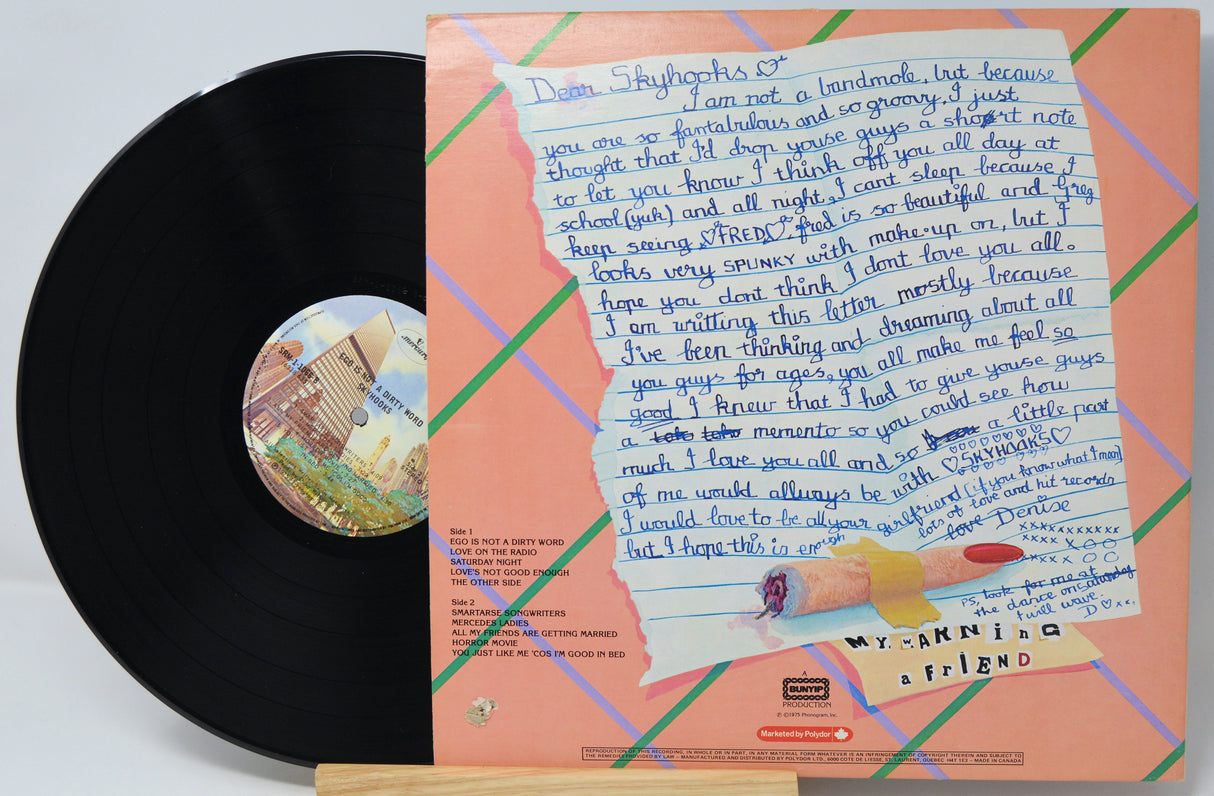 Dear Skyhooks
I am not a bandmole, but because
you are so fantabulous and so groovy, I just
thought that I'd drop youse guys a short note
to let you know I think off you all day at
school (yuk) and all night, I cant sleep because I
keep seeing FRED, fred is so beautiful and Greg
looks very SPUNKY with make-up on, but I
hope you dont think I dont love you all.
I am writting this letter mostly because
I've been thinking and dreaming about all
you guys for ages, you all make me feel so
good I knew that I had to give youse guys
a memento so you could see how
much I love you all and so a little part
of me would allways be with SKYHOOKS
I would love to be all your girlfriend (if you know what I mean)
but I hope this is enough
lots of love and hit records
love Denise
xxxxxxxxxxx
xxxx xOO
xxxx OO
PS, look for me at
the dance on saturday
I will wave.
D xx.
MY. wARNiNG
a FrIEND
EGO IS NOT A DIRTY WORD
SKYHOOKS
SRM-1-1066 B
Side 1
EGO IS NOT A DIRTY WORD
LOVE ON THE RADIO
SATURDAY NIGHT
LOVE'S NOT GOOD ENOUGH
THE OTHER SIDE
Side 2
SMARTARSE SONGWRITERS
MERCEDES LADIES
ALL MY FRIENDS ARE GETTING MARRIED
HORROR MOVIE
YOU JUST LIKE ME 'COS I'M GOOD IN BED
A
BUNYIP
PRODUCTION
℗ ©1975 Phonogram, Inc.
Marketed by Polydor
REPRODUCTION OF THIS RECORDING, IN WHOLE OR IN PART, IN ANY MATERIAL FORM WHATEVER IS AN INFRINGEMENT OF COPYRIGHT THEREIN AND SUBJECT TO
THE REMEDIES PROVIDED BY LAW – MANUFACTURED AND DISTRIBUTED BY POLYDOR LTD., 6000 COTE DE LIESSE, ST. LAURENT, QUEBEC H4T 1E3 – MADE IN CANADA